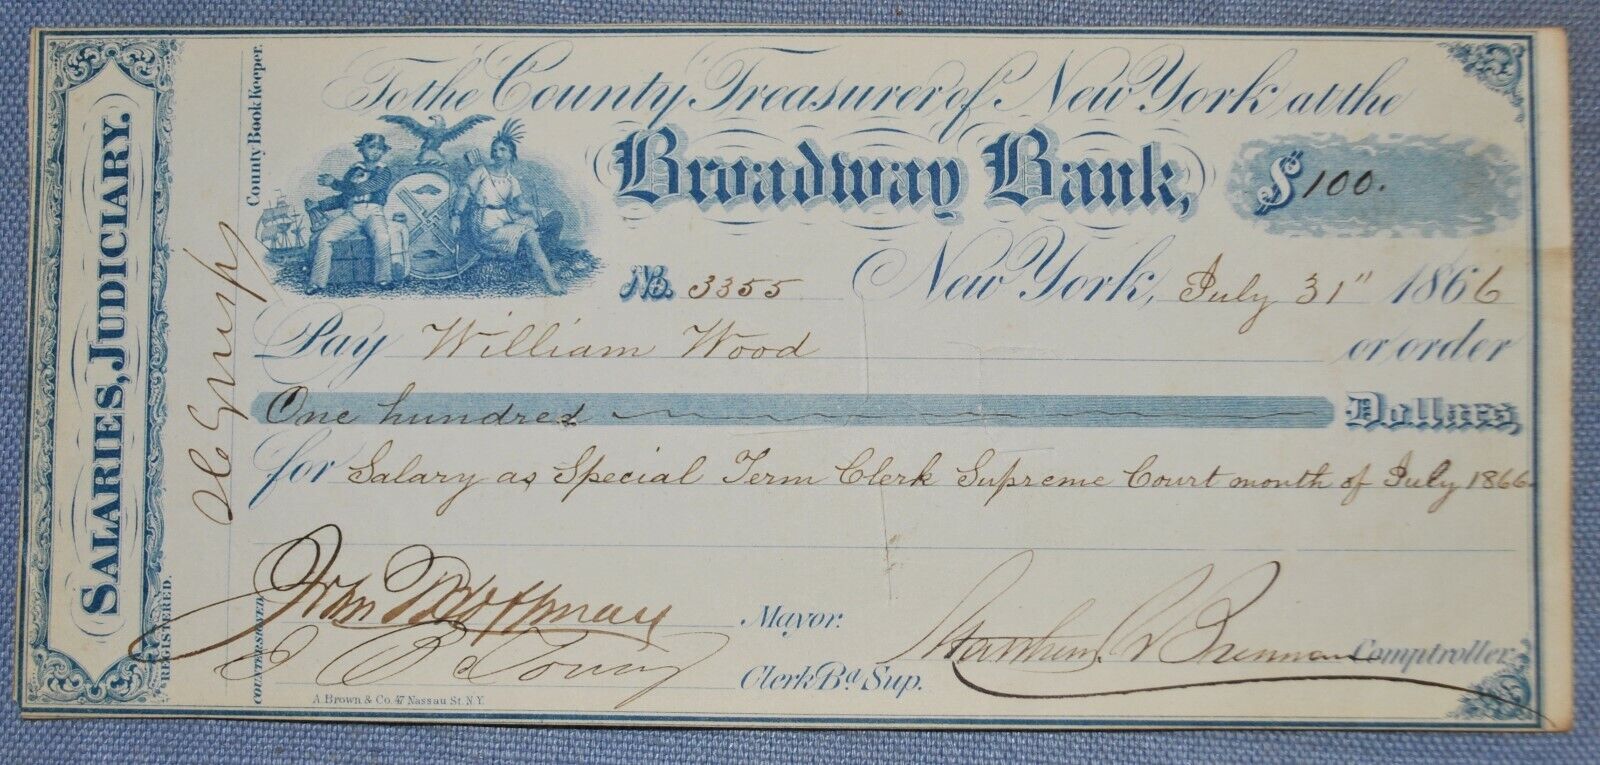 SALARIES, JUDICIARY.
REGISTERED.
County Book Keeper.
To the County Treasurer of New York at the
Broadway Bank,
$ 100.
No. 3355 New York, July 31" 1866
Pay William Wood or order
One hundred Dollars,
for Salary as Special Term Clerk Supreme Court month of July 1866
COUNTERSIGNED.
John T Hoffman Mayor.
Young Clerk Bd. Sup.
Matthew T Brennan Comptroller
A. Brown & Co. 47 Nassau St. N.Y.